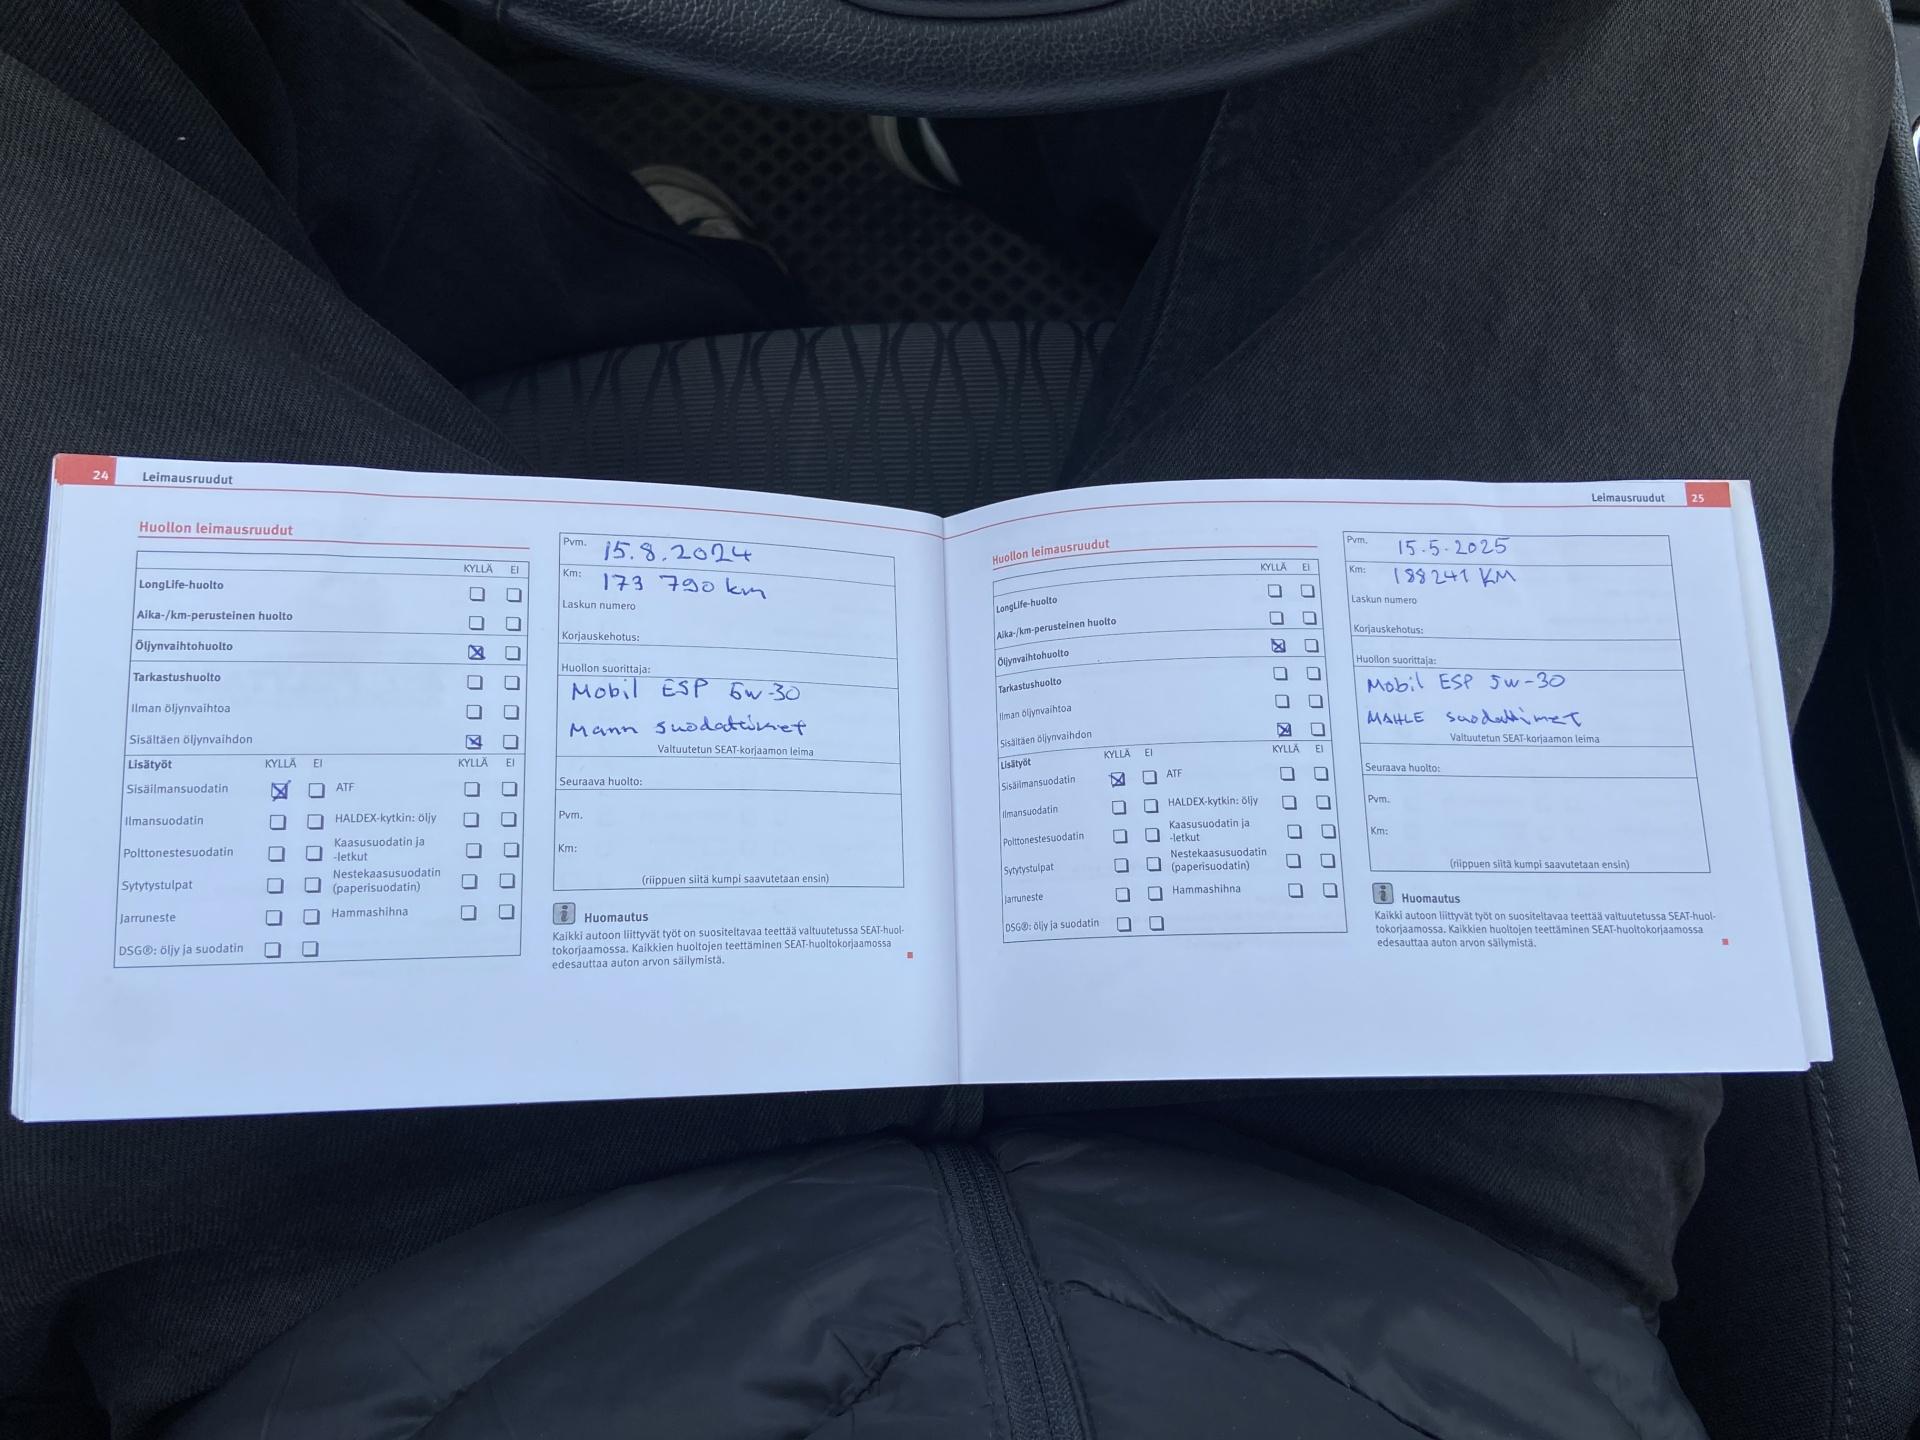 24 Leimausruudut
Huollon leimausruudut
KYLLÄ EI
LongLife-huolto
Aika-/km-perusteinen huolto
Öljynvaihtohuolto
Tarkastushuolto
Ilman öljynvaihtoa
Sisältäen öljynvaihdon
Lisätyöt KYLLÄ EI KYLLÄ EI
Sisäilmansuodatin ATF
Ilmansuodatin HALDEX-kytkin: öljy
Polttonestesuodatin Kaasusuodatin ja
-letkut
Sytytystulpat Nestekaasusuodatin
(paperisuodatin)
Jarruneste Hammashihna
DSG®: öljy ja suodatin
Pvm. 15.8.2024
Km: 173 790 km
Laskun numero
Korjauskehotus:
Huollon suorittaja:
Mobil ESP 5W-30
Mann suodattimet
Valtuutetun SEAT-korjaamon leima
Seuraava huolto:
Pvm.
Km:
(riippuen siitä kumpi saavutetaan ensin)
i Huomautus
Kaikki autoon liittyvät työt on suositeltavaa teettää valtuutetussa SEAT-huol-
tokorjaamossa. Kaikkien huoltojen teettäminen SEAT-huoltokorjaamossa
edesauttaa auton arvon säilymistä.
Leimausruudut 25
Huollon leimausruudut
KYLLÄ EI
LongLife-huolto
Aika-/km-perusteinen huolto
Öljynvaihtohuolto
Tarkastushuolto
Ilman öljynvaihtoa
Sisältäen öljynvaihdon
Lisätyöt KYLLÄ EI KYLLÄ EI
Sisäilmansuodatin ATF
Ilmansuodatin HALDEX-kytkin: öljy
Polttonestesuodatin Kaasusuodatin ja
-letkut
Sytytystulpat Nestekaasusuodatin
(paperisuodatin)
Jarruneste Hammashihna
DSG®: öljy ja suodatin
Pvm. 15.5.2025
Km: 188241 KM
Laskun numero
Korjauskehotus:
Huollon suorittaja:
Mobil ESP 5W-30
MAHLE suodattimet
Valtuutetun SEAT-korjaamon leima
Seuraava huolto:
Pvm.
Km:
(riippuen siitä kumpi saavutetaan ensin)
i Huomautus
Kaikki autoon liittyvät työt on suositeltavaa teettää valtuutetussa SEAT-huol-
tokorjaamossa. Kaikkien huoltojen teettäminen SEAT-huoltokorjaamossa
edesauttaa auton arvon säilymistä.